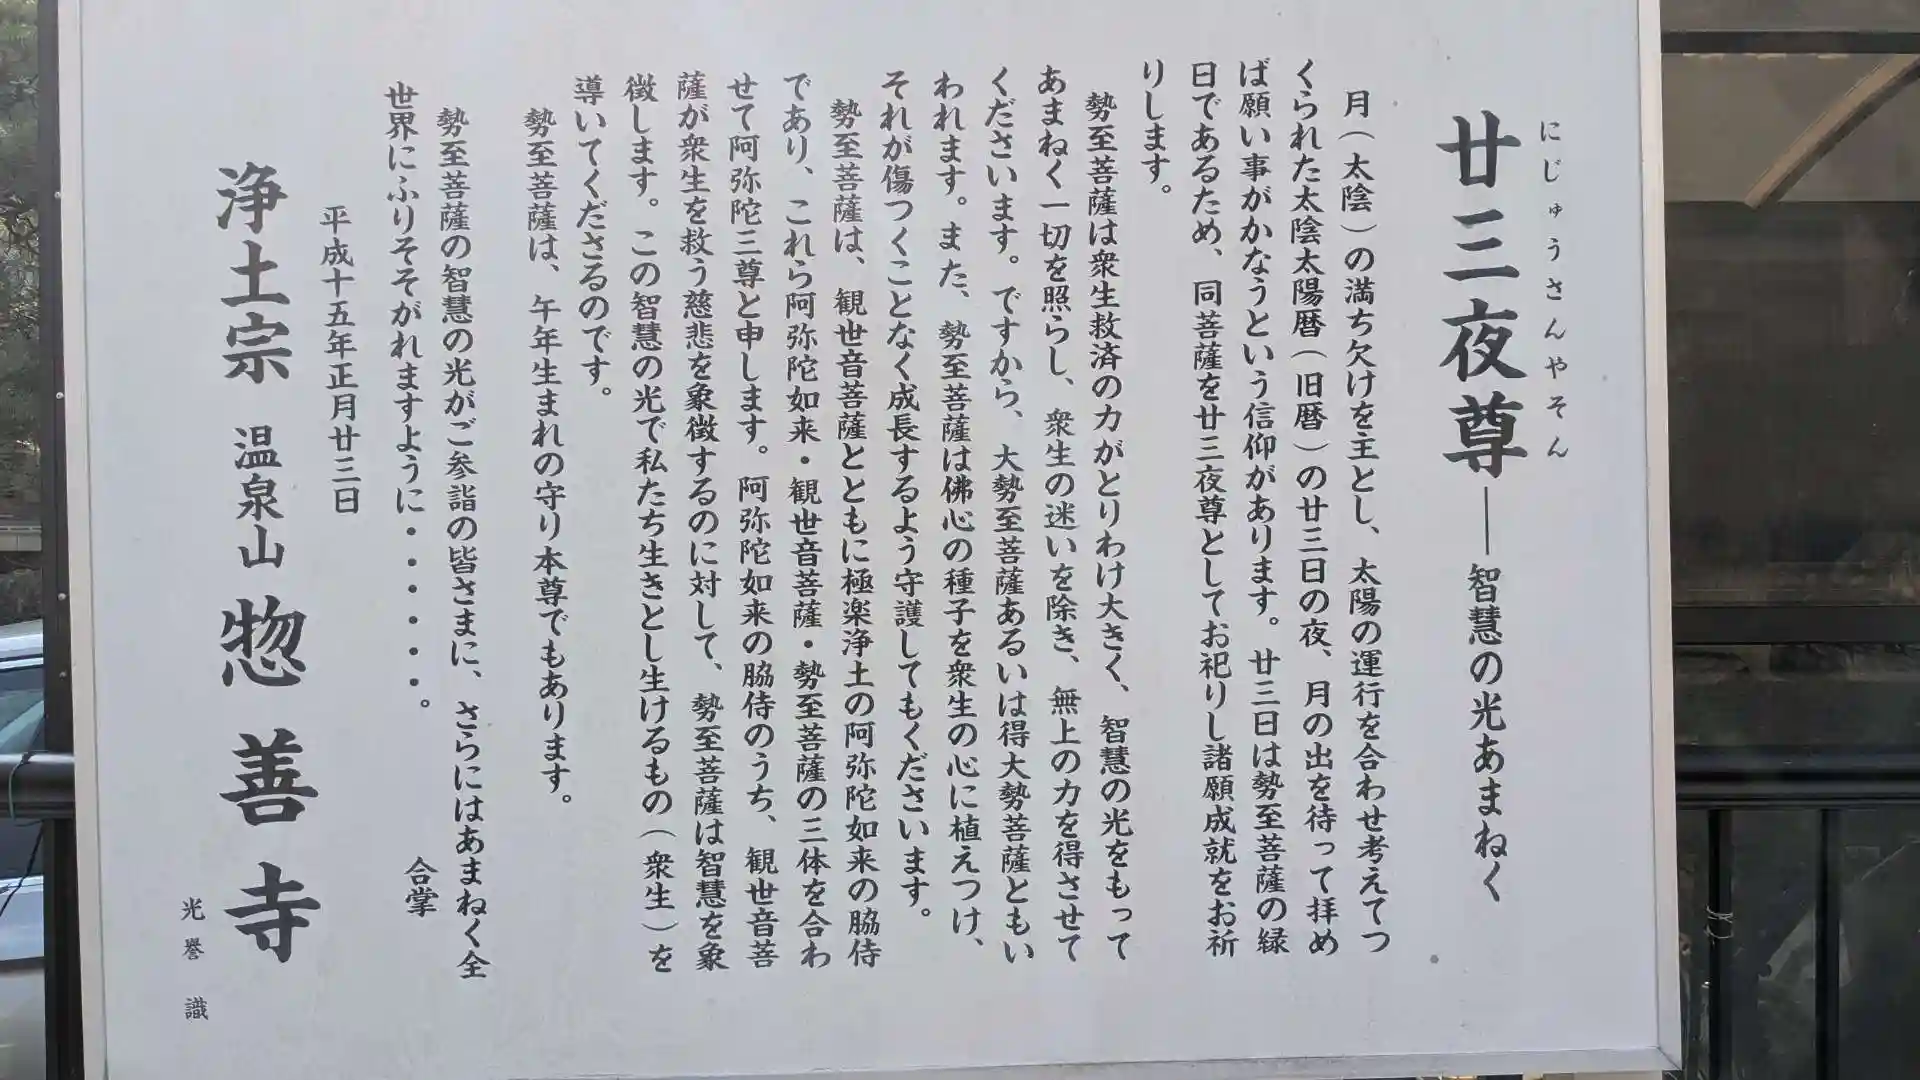 にじゅうさんやそん
廿三夜尊――智慧の光あまねく
月（太陰）の満ち欠けを主とし、太陽の運行を合わせ考えてつ
くられた太陰太陽暦（旧暦）の廿三日の夜、月の出を待って拝め
ば願い事がかなうという信仰があります。廿三日は勢至菩薩の縁
日であるため、同菩薩を廿三夜尊としてお祀りし諸願成就をお祈
りします。
勢至菩薩は衆生救済の力がとりわけ大きく、智慧の光をもって
あまねく一切を照らし、衆生の迷いを除き、無上の力を得させて
くださいます。ですから、大勢至菩薩あるいは得大勢菩薩ともい
われます。また、勢至菩薩は佛心の種子を衆生の心に植えつけ、
それが傷つくことなく成長するよう守護してもくださいます。
勢至菩薩は、観世音菩薩とともに極楽浄土の阿弥陀如来の脇侍
であり、これら阿弥陀如来・観世音菩薩・勢至菩薩の三体を合わ
せて阿弥陀三尊と申します。阿弥陀如来の脇侍のうち、観世音菩
薩が衆生を救う慈悲を象徴するのに対して、勢至菩薩は智慧を象
徴します。この智慧の光で私たち生きとし生けるもの（衆生）を
導いてくださるのです。
勢至菩薩は、午年生まれの守り本尊でもあります。
勢至菩薩の智慧の光がご参詣の皆さまに、さらにはあまねく全
世界にふりそそがれますように・・・・・・。
合掌
平成十五年正月廿三日
浄土宗 温泉山 惣善寺
光誉 識